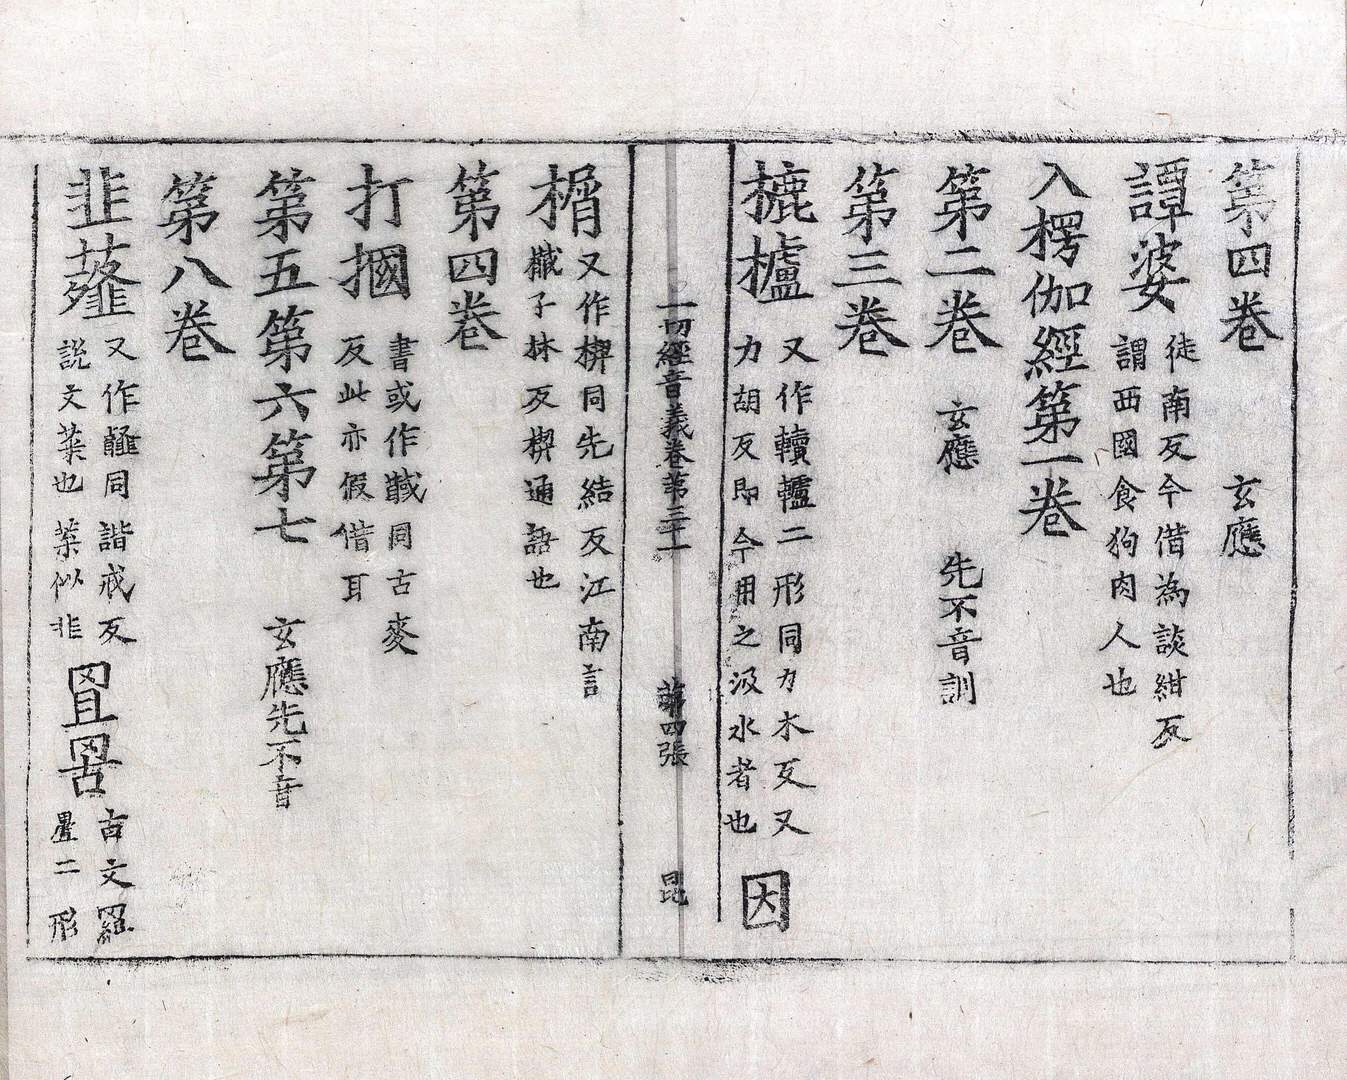 第四卷 玄應
譚婆 徒南反今借為談紺反
謂西國食狗肉人也
入楞伽經第一卷
第二卷 玄應 先不音訓
第三卷
樚櫨 又作轒轤二形同力木反又
力胡反即今用之汲水者也 因
一切經音義卷第三十一 第四張 昆
榍 又作楔同先結反江南言
櫼子林反楔通語也
第四卷
打摑 書或作䤋同古麥
反此亦假借耳
第五第六第七 玄應先不音
第八卷
韭䪥 又作同諧戒反
説文菜也菜似韭
罝罟 古文羅
罿二形